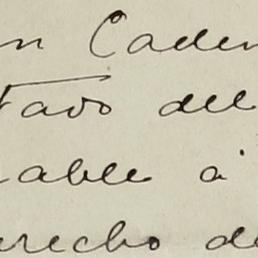 n Caden
tado del
able á
erecho de